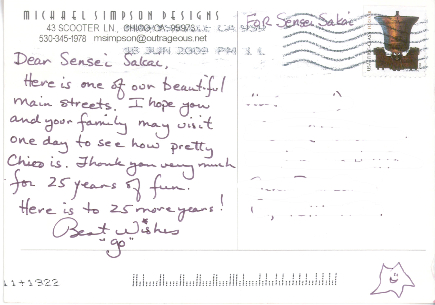 MICHAEL SIMPSON DESIGNS
43 SCOOTER LN., CHICO CA, 95975
530-345-1978 msimpson@outrageous.net
18 JUN 2009 PM
FOR Sensei Sakai
Dear Sensei Sakai,
Here is one of our beautiful
main streets. I hope you
and your family may visit
one day to see how pretty
Chico is. Thank you very much
for 25 years of fun.
Here is to 25 more years!
Best Wishes
"go"